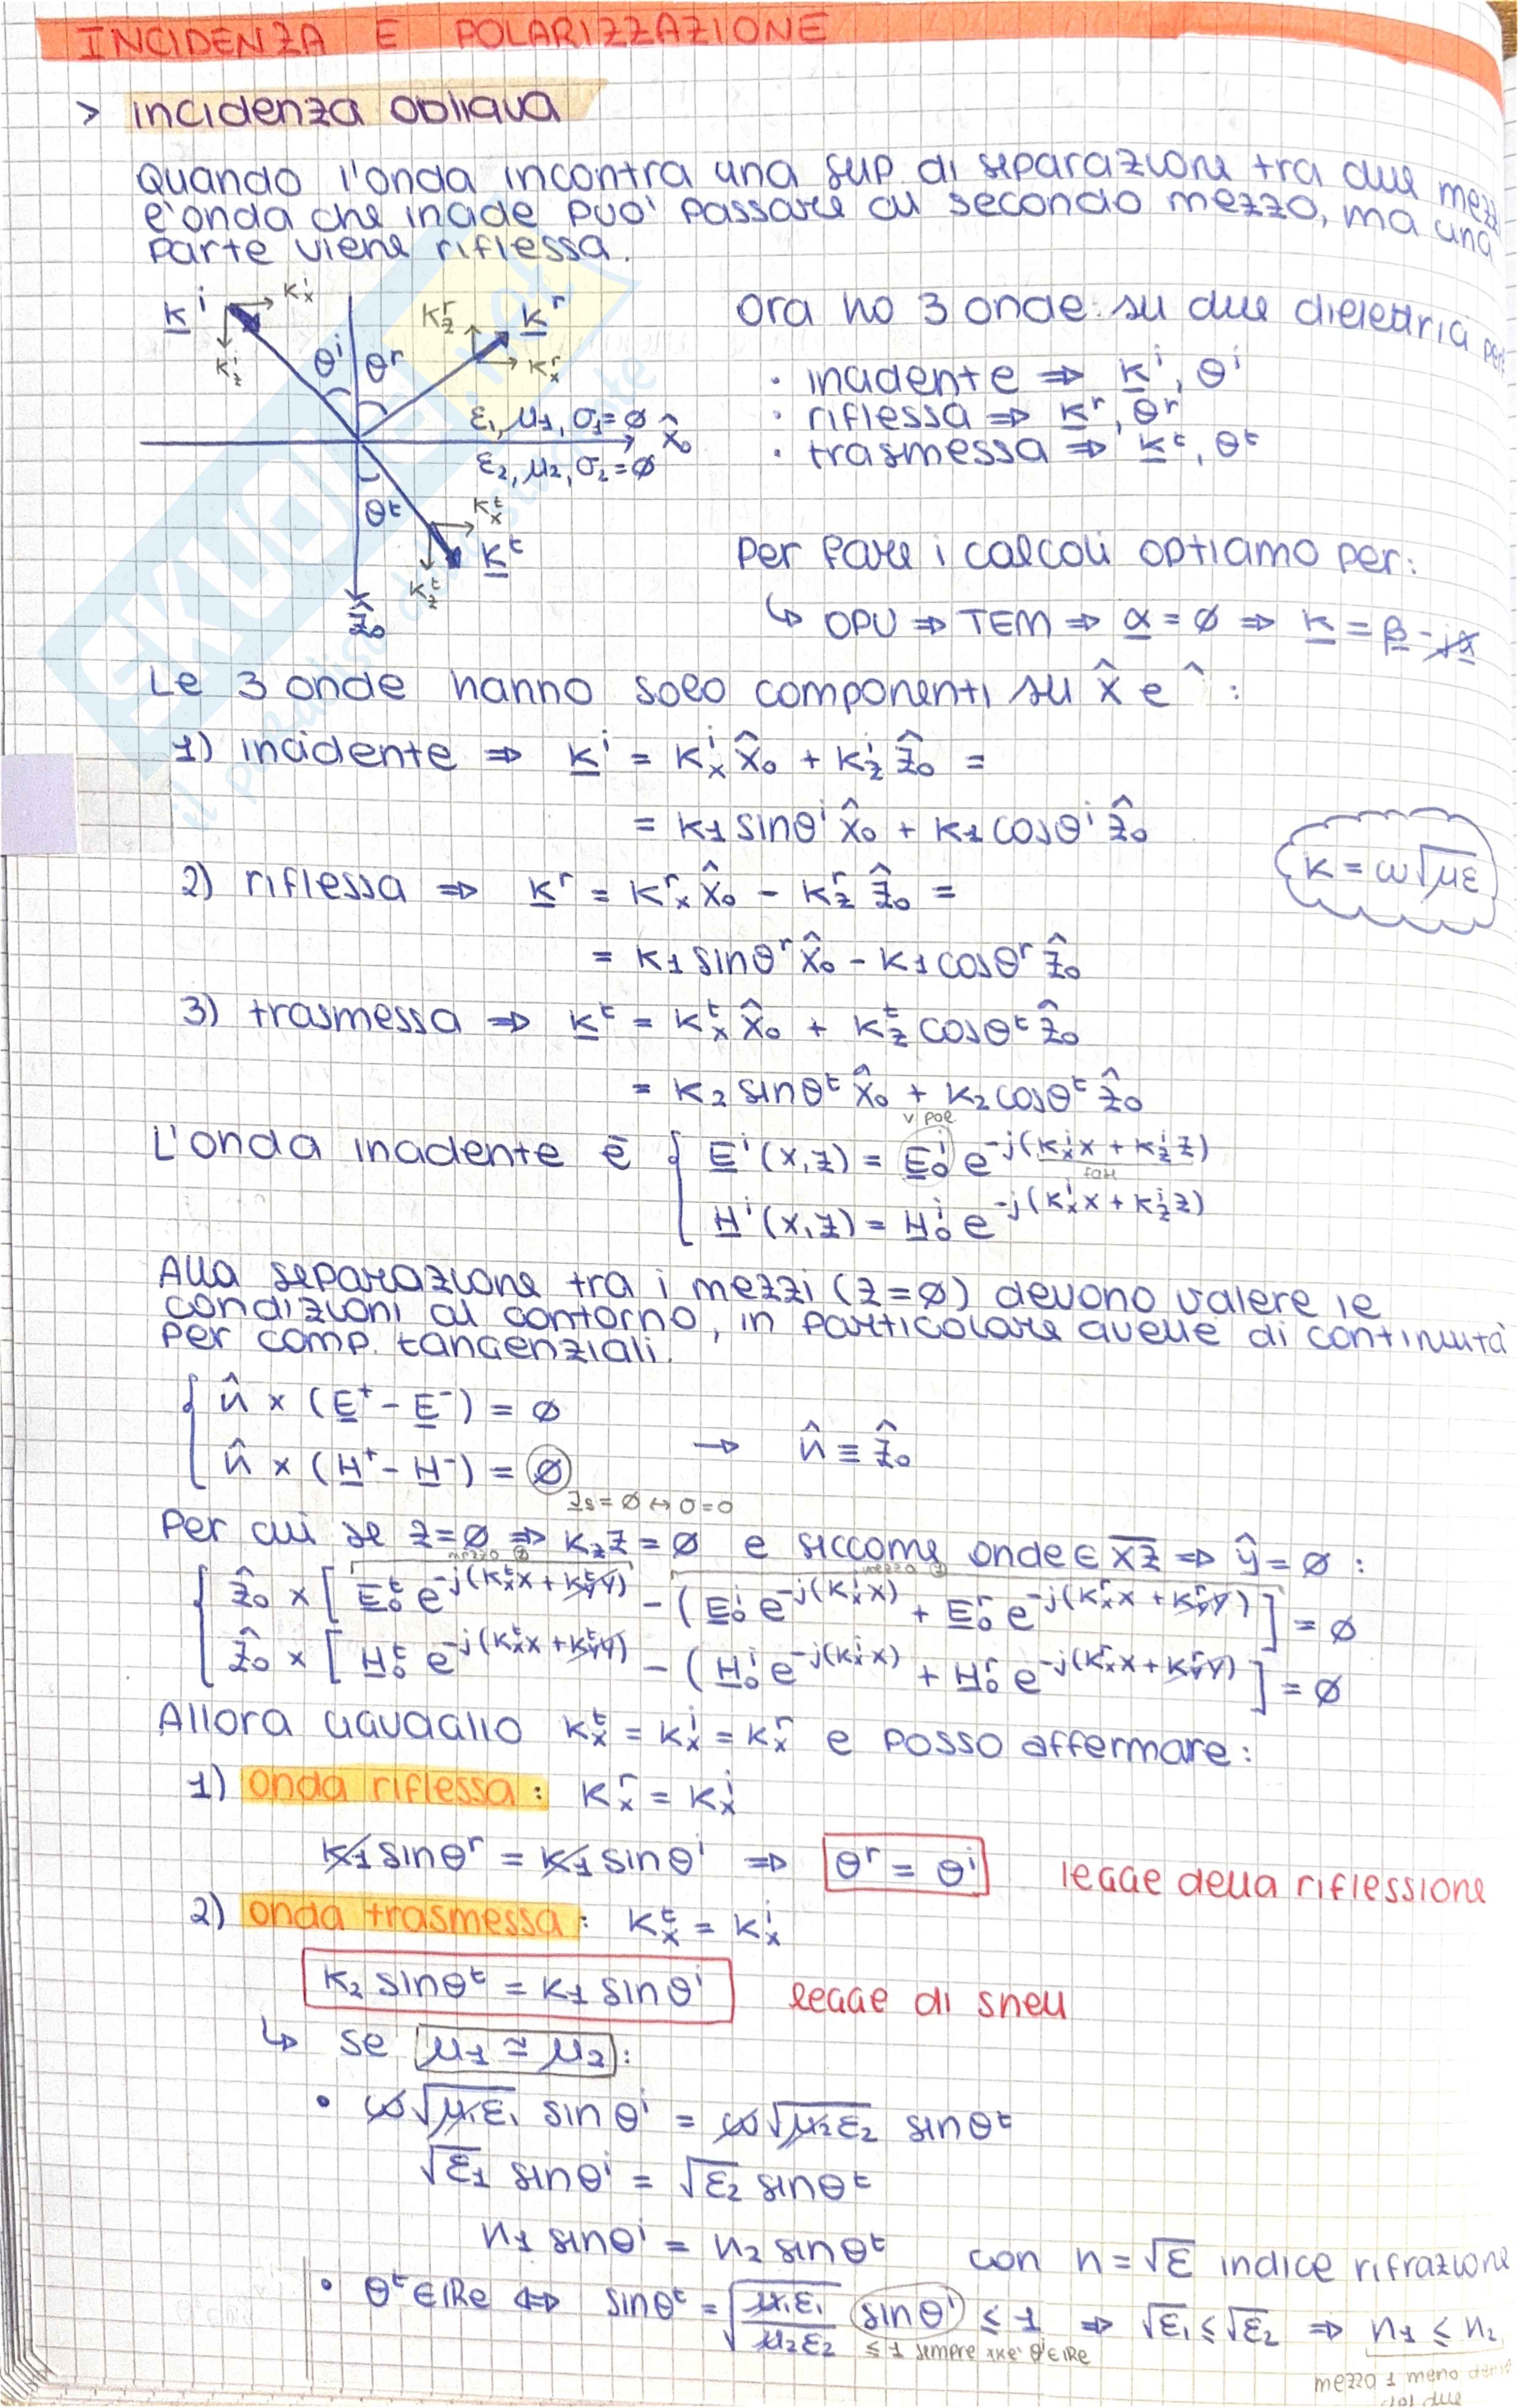 INCIDENZA E POLARIZZAZIONE
> incidenza obliqua
Quando l'onda incontra una sup di separazione tra due mezzi
l'onda che incide può passare al secondo mezzo, ma una
parte viene riflessa.
k^i K_x^i K_z^i θ^i θ^r K_z^r k^r K_x^r
ε1, μ1, σ1=ø x̂0
ε2, μ2, σ2=ø
θ^t K_x^t k^t K_z^t
ẑ0
Ora ho 3 onde su due dielettrici
· incidente ⇒ k^i, θ^i
· riflessa ⇒ k^r, θ^r
· trasmessa ⇒ k^t, θ^t
Per fare i calcoli optiamo per:
↳ OPU ⇒ TEM ⇒ α = ø ⇒ k = β - jα
Le 3 onde hanno solo componenti su x̂ e ^ :
1) incidente ⇒ k^i = K_x^i x̂0 + K_z^i ẑ0 =
= K1 sinθ^i x̂0 + K1 cosθ^i ẑ0
K = ω√με
2) riflessa ⇒ k^r = K_x^r x̂0 - K_z^r ẑ0 =
= K1 sinθ^r x̂0 - K1 cosθ^r ẑ0
3) trasmessa ⇒ k^t = K_x^t x̂0 + K_z^t cosθ^t ẑ0
= K2 sinθ^t x̂0 + K2 cosθ^t ẑ0
v. pol
L'onda incidente è { E^i(x,z) = E0^i e^-j(K_x^i x + K_z^i z)
fase
H^i(x,z) = H0^i e^-j(K_x^i x + K_z^i z)
Alla separazione tra i mezzi (z=ø) devono valere le
condizioni al contorno, in particolare quelle di continuità
per comp. tangenziali.
{ n̂ × (E^+ - E^-) = ø
n̂ × (H^+ - H^-) = ø → n̂ ≡ ẑ0
Js = ø ↔ σ=0
Per cui se z=ø ⇒ K_z z = ø e siccome onde ∈ xz ⇒ ŷ = ø :
mezzo 2 mezzo 1
{ ẑ0 × [ E0^t e^-j(K_x^t x + K_y^t y) - (E0^i e^-j(K_x^i x) + E0^r e^-j(K_x^r x + K_y^r y) ] = ø
ẑ0 × [ H0^t e^-j(K_x^t x + K_y^t y) - (H0^i e^-j(K_x^i x) + H0^r e^-j(K_x^r x + K_y^r y) ] = ø
Allora uguaglio K_x^t = K_x^i = K_x^r e posso affermare:
1) onda riflessa: K_x^r = K_x^i
K1 sinθ^r = K1 sinθ^i ⇒ θ^r = θ^i legge della riflessione
2) onda trasmessa: K_x^t = K_x^i
K2 sinθ^t = K1 sinθ^i legge di snell
↳ se μ1 ≃ μ2 :
• ω√μ1ε1 sinθ^i = ω√μ2ε2 sinθ^t
√ε1 sinθ^i = √ε2 sinθ^t
n1 sinθ^i = n2 sinθ^t con n = √ε indice rifrazione
• θ^t ∈ IRe ⇔ sinθ^t = √(μ1ε1/μ2ε2) sinθ^i ≤ 1 ⇒ √ε1 ≤ √ε2 ⇒ n1 ≤ n2
≤ 1 sempre xkè θ^i ∈ IRe
mezzo 1 meno denso
del due